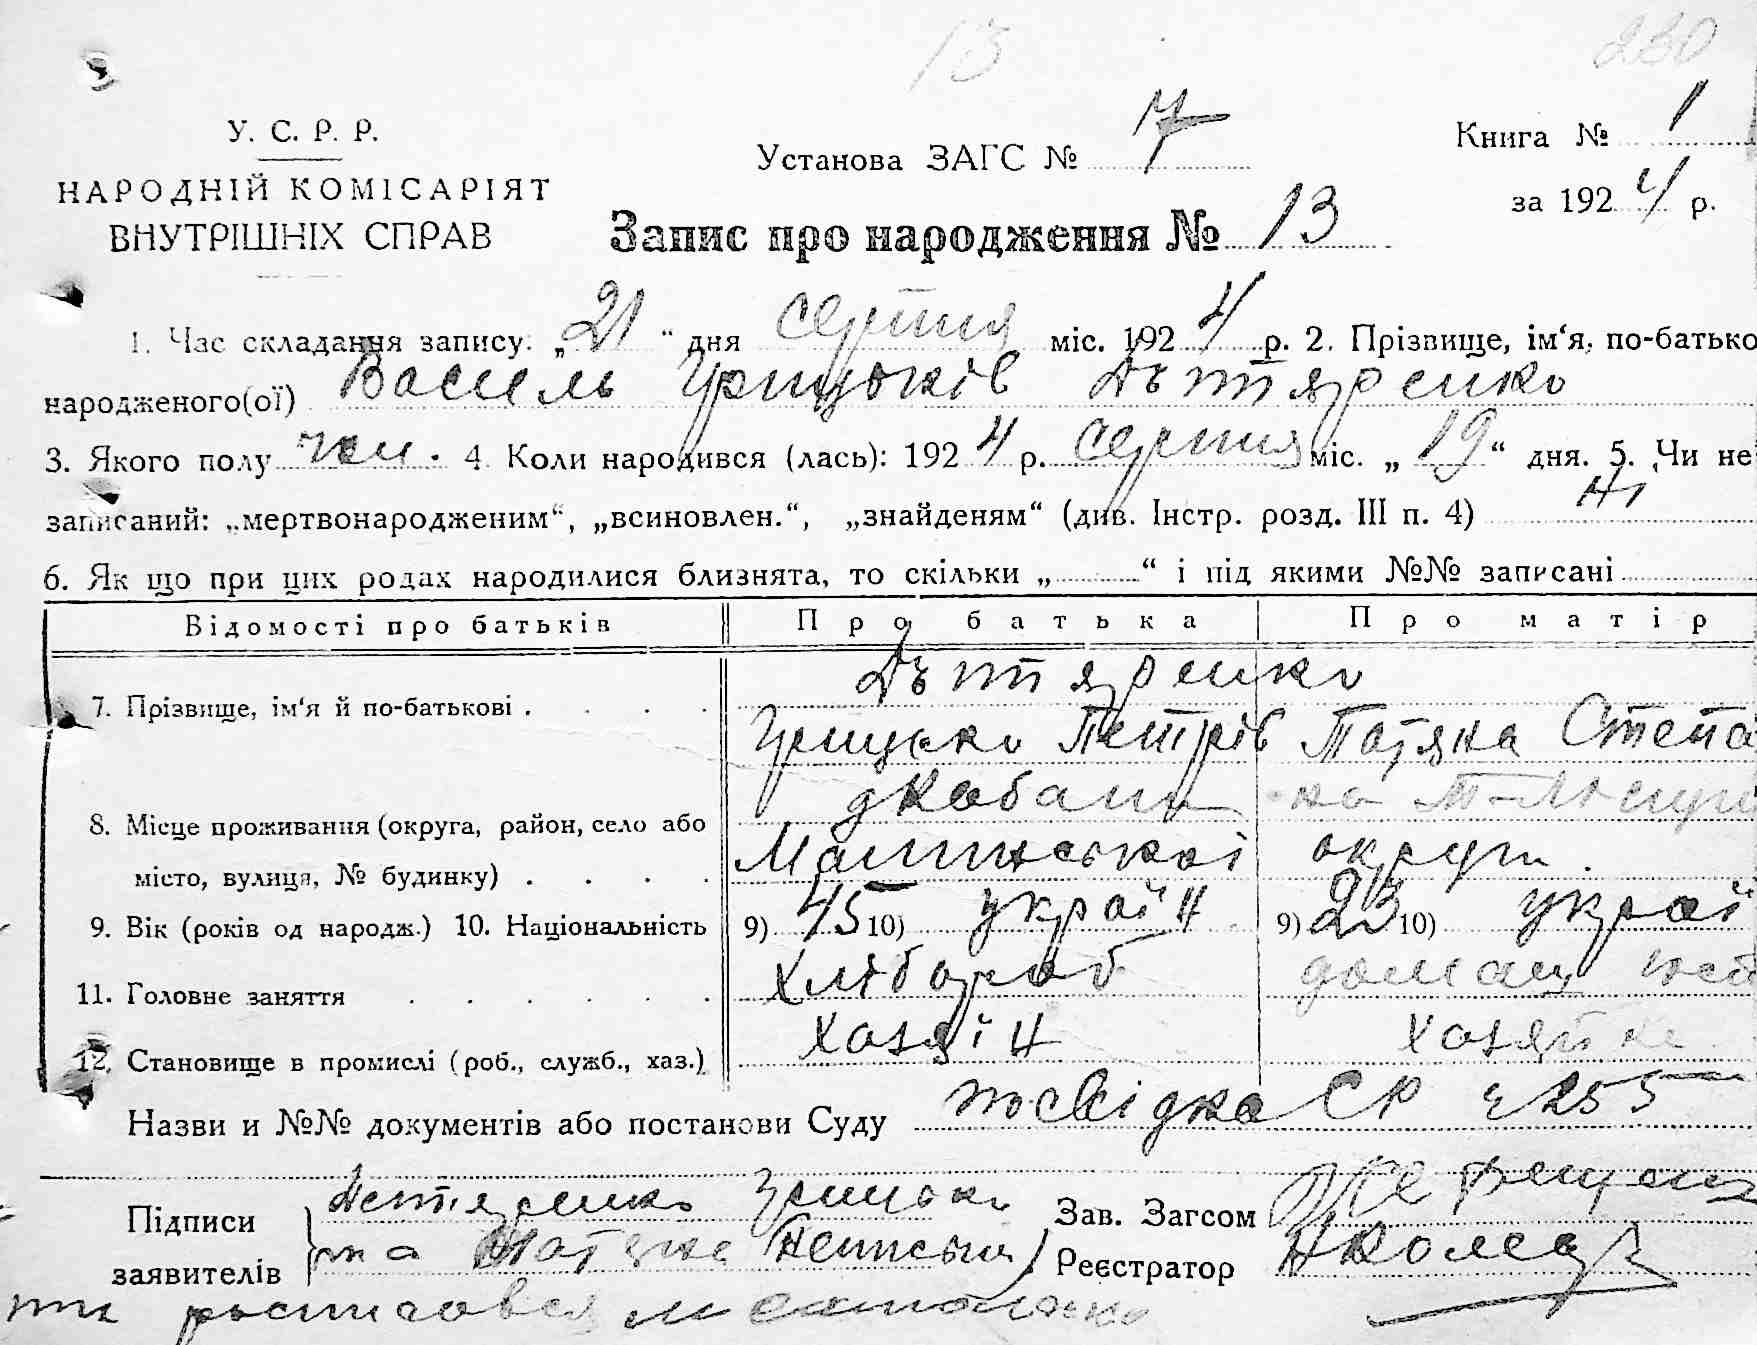 13
230
У. С. Р. Р.
НАРОДНІЙ КОМІСАРІЯТ
ВНУТРІШНІХ СПРАВ
Установа ЗАГС № 17
Книга № 1
за 1924 р.
Запис про народження № 13
1. Час складання запису: „21“ дня серпня міс. 1924 р. 2. Прізвище, ім‘я, по-батько
народженого(ої) Василь Грицьків Дътяренко
3. Якого полу чол. 4 Коли народився (лась): 1924 р. серпня міс. „19“ дня. 5. Чи не
записаний: „мертвонародженим“, „всиновлен.“, „знайденям“ (див. Інстр. розд. III п. 4) Ні
6. Як що при цих родах народилися близнята, то скільки „ “ і під якими №№ записані
Відомості про батьків Про батька Про матір
Дътяренко
7. Прізвище, ім‘я й по-батькові . . . .
Грицько Петрів Степа
8. Місце проживання (округа, район, село або
місто, вулиця, № будинку) . . . . округи.
9. Вік (років од народж.) 10. Національність 9) 45 10) україн 9) 23 10) украї
11. Головне заняття . . . . . . Хлібороб домаш
12. Становище в промислі (роб., служб., хаз.) Хазяїн Хазяйка
Назви и №№ документів або постанови Суду посвідка СР ч 255
Підписи
заявителів
Детяренко Грицько
та
Зав. Загсом
Реєстратор